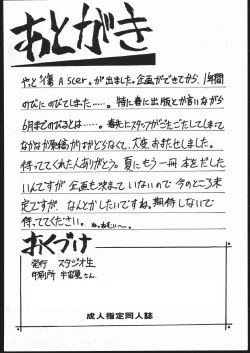 あとがき
やっと傷 A scer。が出ました。企画ができてから、1年間
のびにのびてしまい……。特に春に出版とか言いながら
6月までのびるとは……。春先にスタッフがごたごたしてしまって
なかなか原稿がはかどらなくて、大変お待たせしました。
待っててくれた人ありがとう。夏にもう一冊本をだした
いんですが企画も決まっていないので今のところ未
定ですが、なんとかしたいですね。期待しないで
待っててください。ね、ねむい〜。
おくづけ
発行 スタジオ生
印刷所 宇宙屋さん
成人指定同人誌